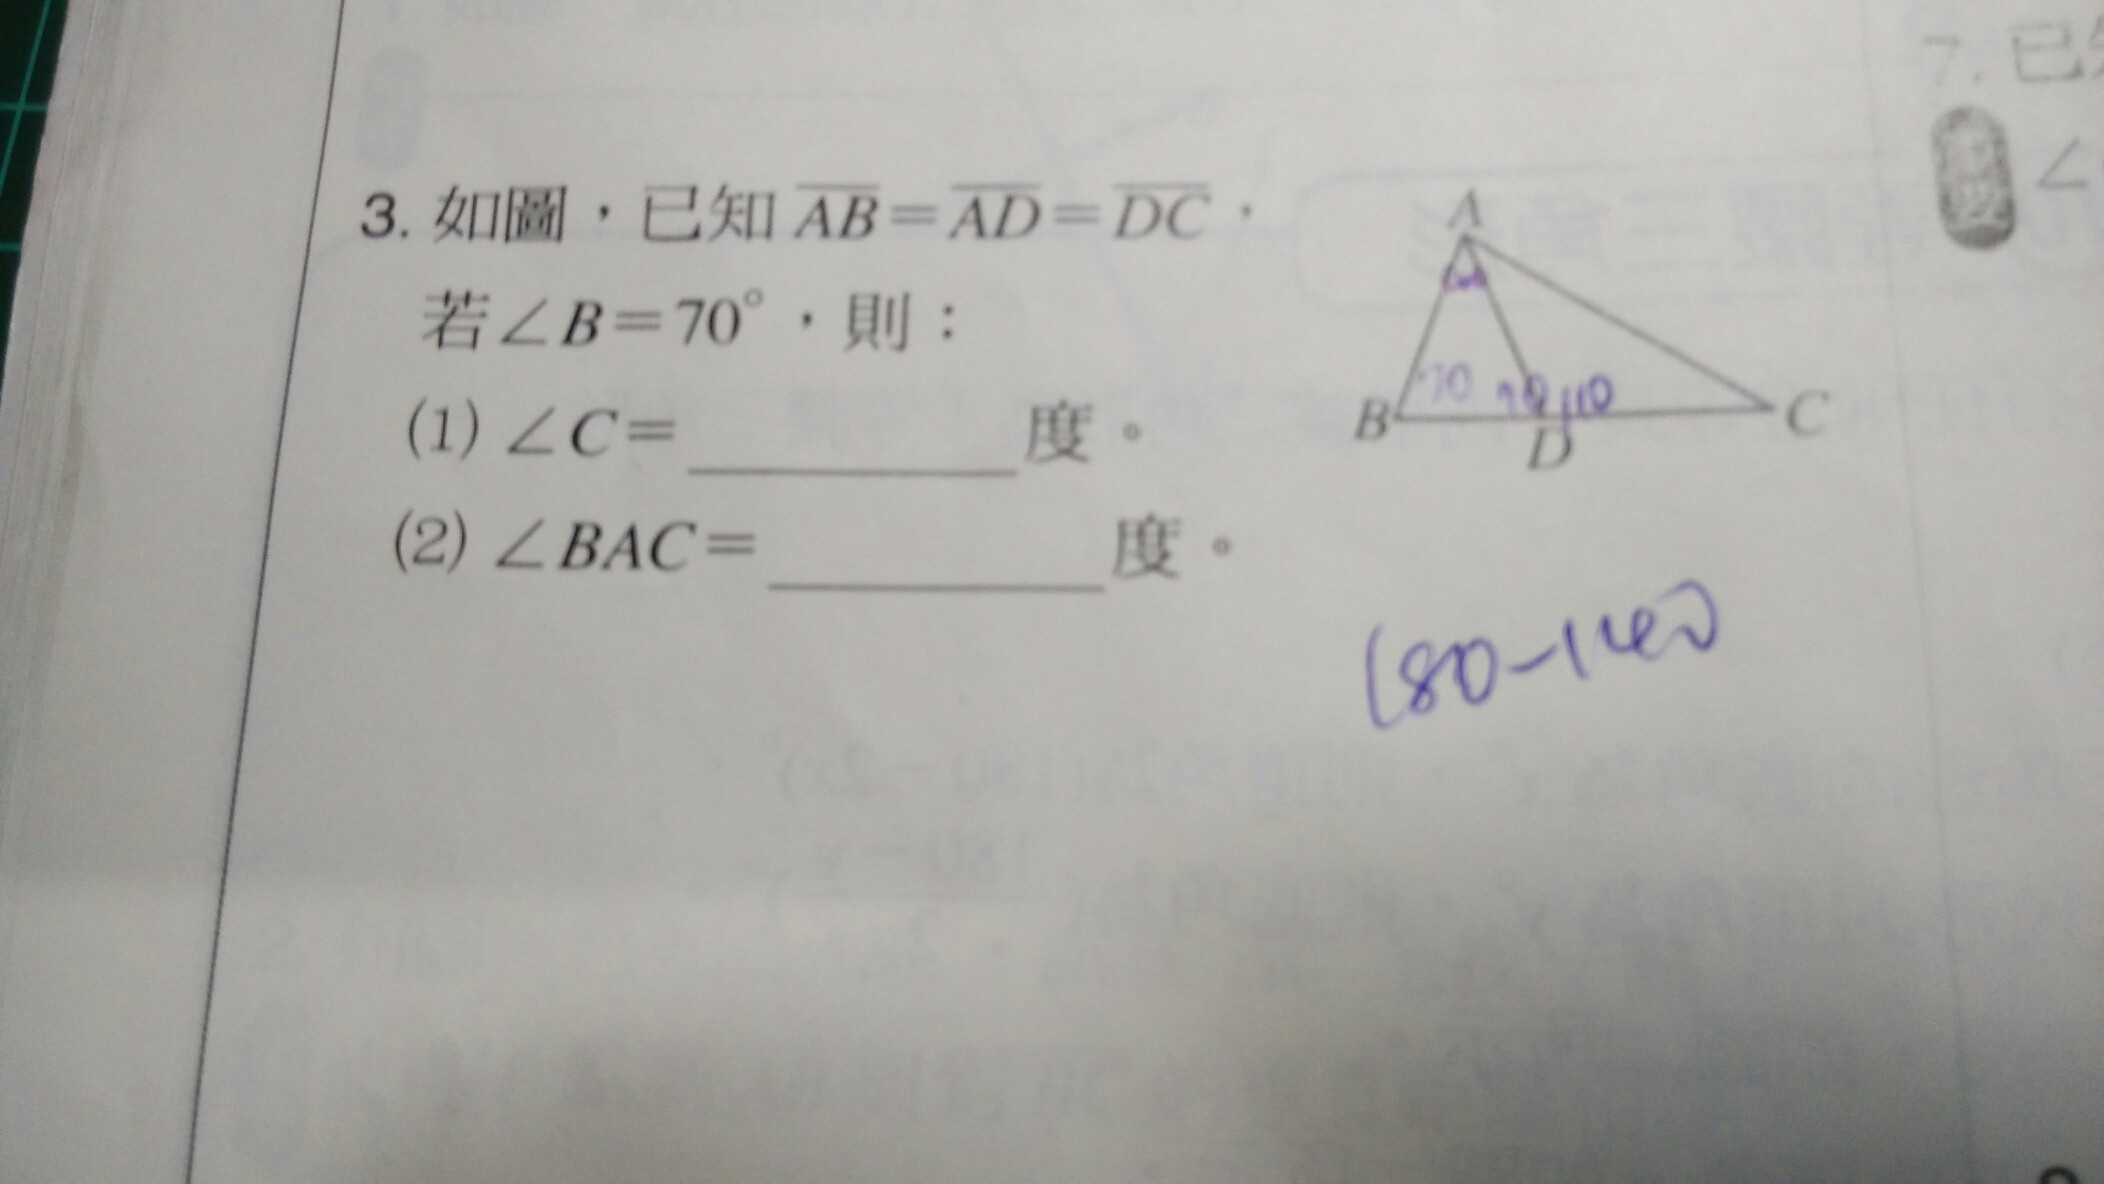 3. 如圖，已知 AB=AD=DC，
若∠B=70°，則：
(1) ∠C=________度。
(2) ∠BAC=________度。
A
B
D
C
70
70
110
180-140
7. 已
∠